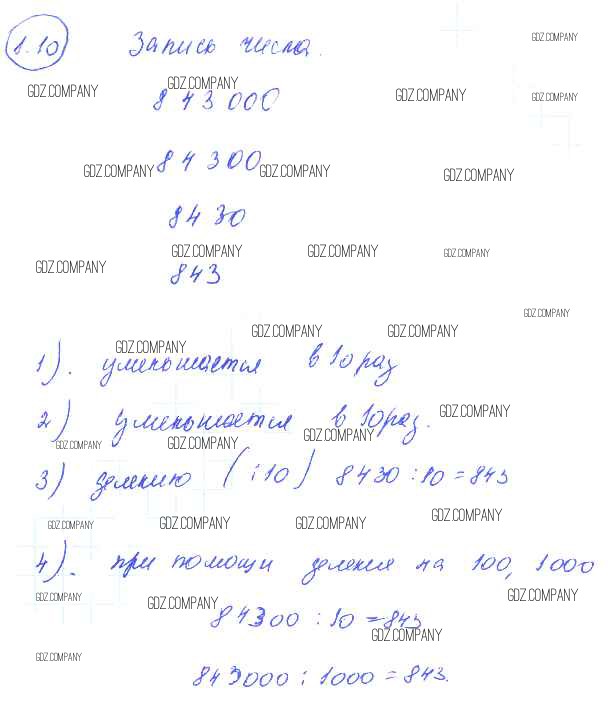 1.10 Запись числа.
GDZ.COMPANY
GDZ.COMPANY GDZ.COMPANY GDZ.COMPANY GDZ.COMPANY
843000
GDZ.COMPANY 84300 GDZ.COMPANY GDZ.COMPANY
8430
GDZ.COMPANY GDZ.COMPANY GDZ.COMPANY GDZ.COMPANY
843
GDZ.COMPANY
GDZ.COMPANY GDZ.COMPANY GDZ.COMPANY
1). уменьшается в 10 раз
2) уменьшается в 10 раз. GDZ.COMPANY
GDZ.COMPANY GDZ.COMPANY GDZ.COMPANY
3) делению (:10) 8430 : 10 = 843
GDZ.COMPANY GDZ.COMPANY GDZ.COMPANY GDZ.COMPANY
4). при помощи деления на 100, 1000
GDZ.COMPANY GDZ.COMPANY GDZ.COMPANY
84300 : 10 = 843
GDZ.COMPANY
GDZ.COMPANY
843000 : 1000 = 843.